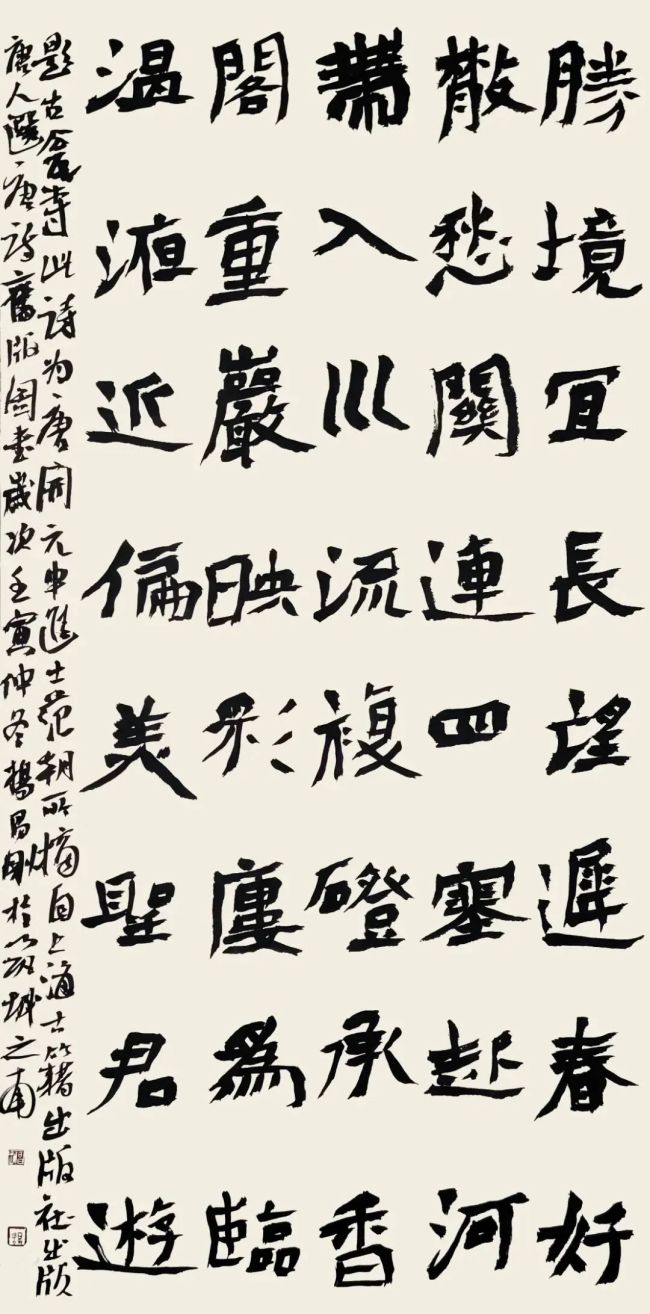 勝境宜長望遲春好
散愁關連四塞起河
帶入川流複磴承香
閣重巖映彩廔為臨
温液近偏美聖君遊
題古甕寺此詩為唐開元中進士范朝所摘自上海古籍出版社出版
唐人選唐詩舊版圖書歲次壬寅仲冬楊昌剛於筑城之南